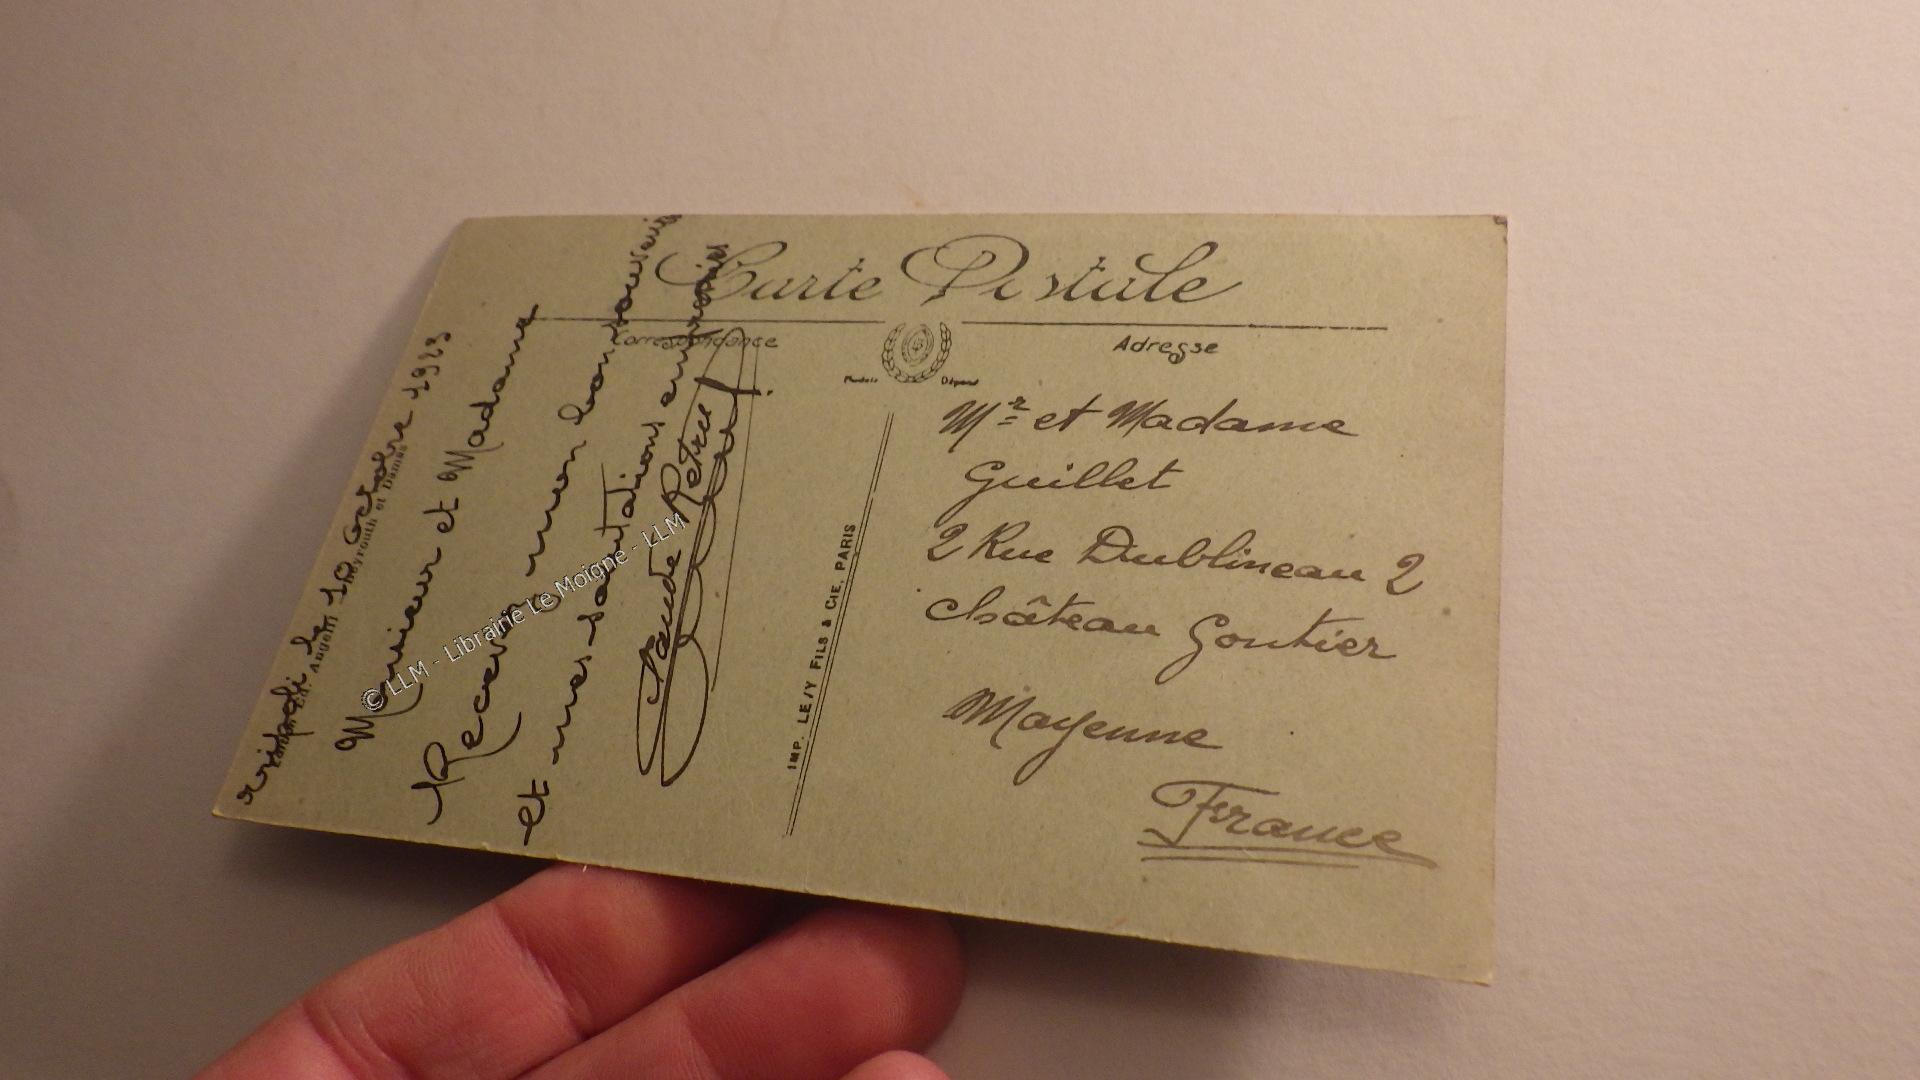 Carte Postale
Correspondance
Adresse
Modèle Déposé
le 10 octobre 1923
Angeli Beyrouth et Damas
Monsieur et Madame
Recevez mon bon souvenir
et mes salutations empressées
Claude Petre
© LLM - Librairie Le Moigne - LLM
IMP. LEVY FILS & CIE, PARIS
Mr et Madame
Guillet
2 Rue Dublineau 2
Château Gontier
Mayenne
France